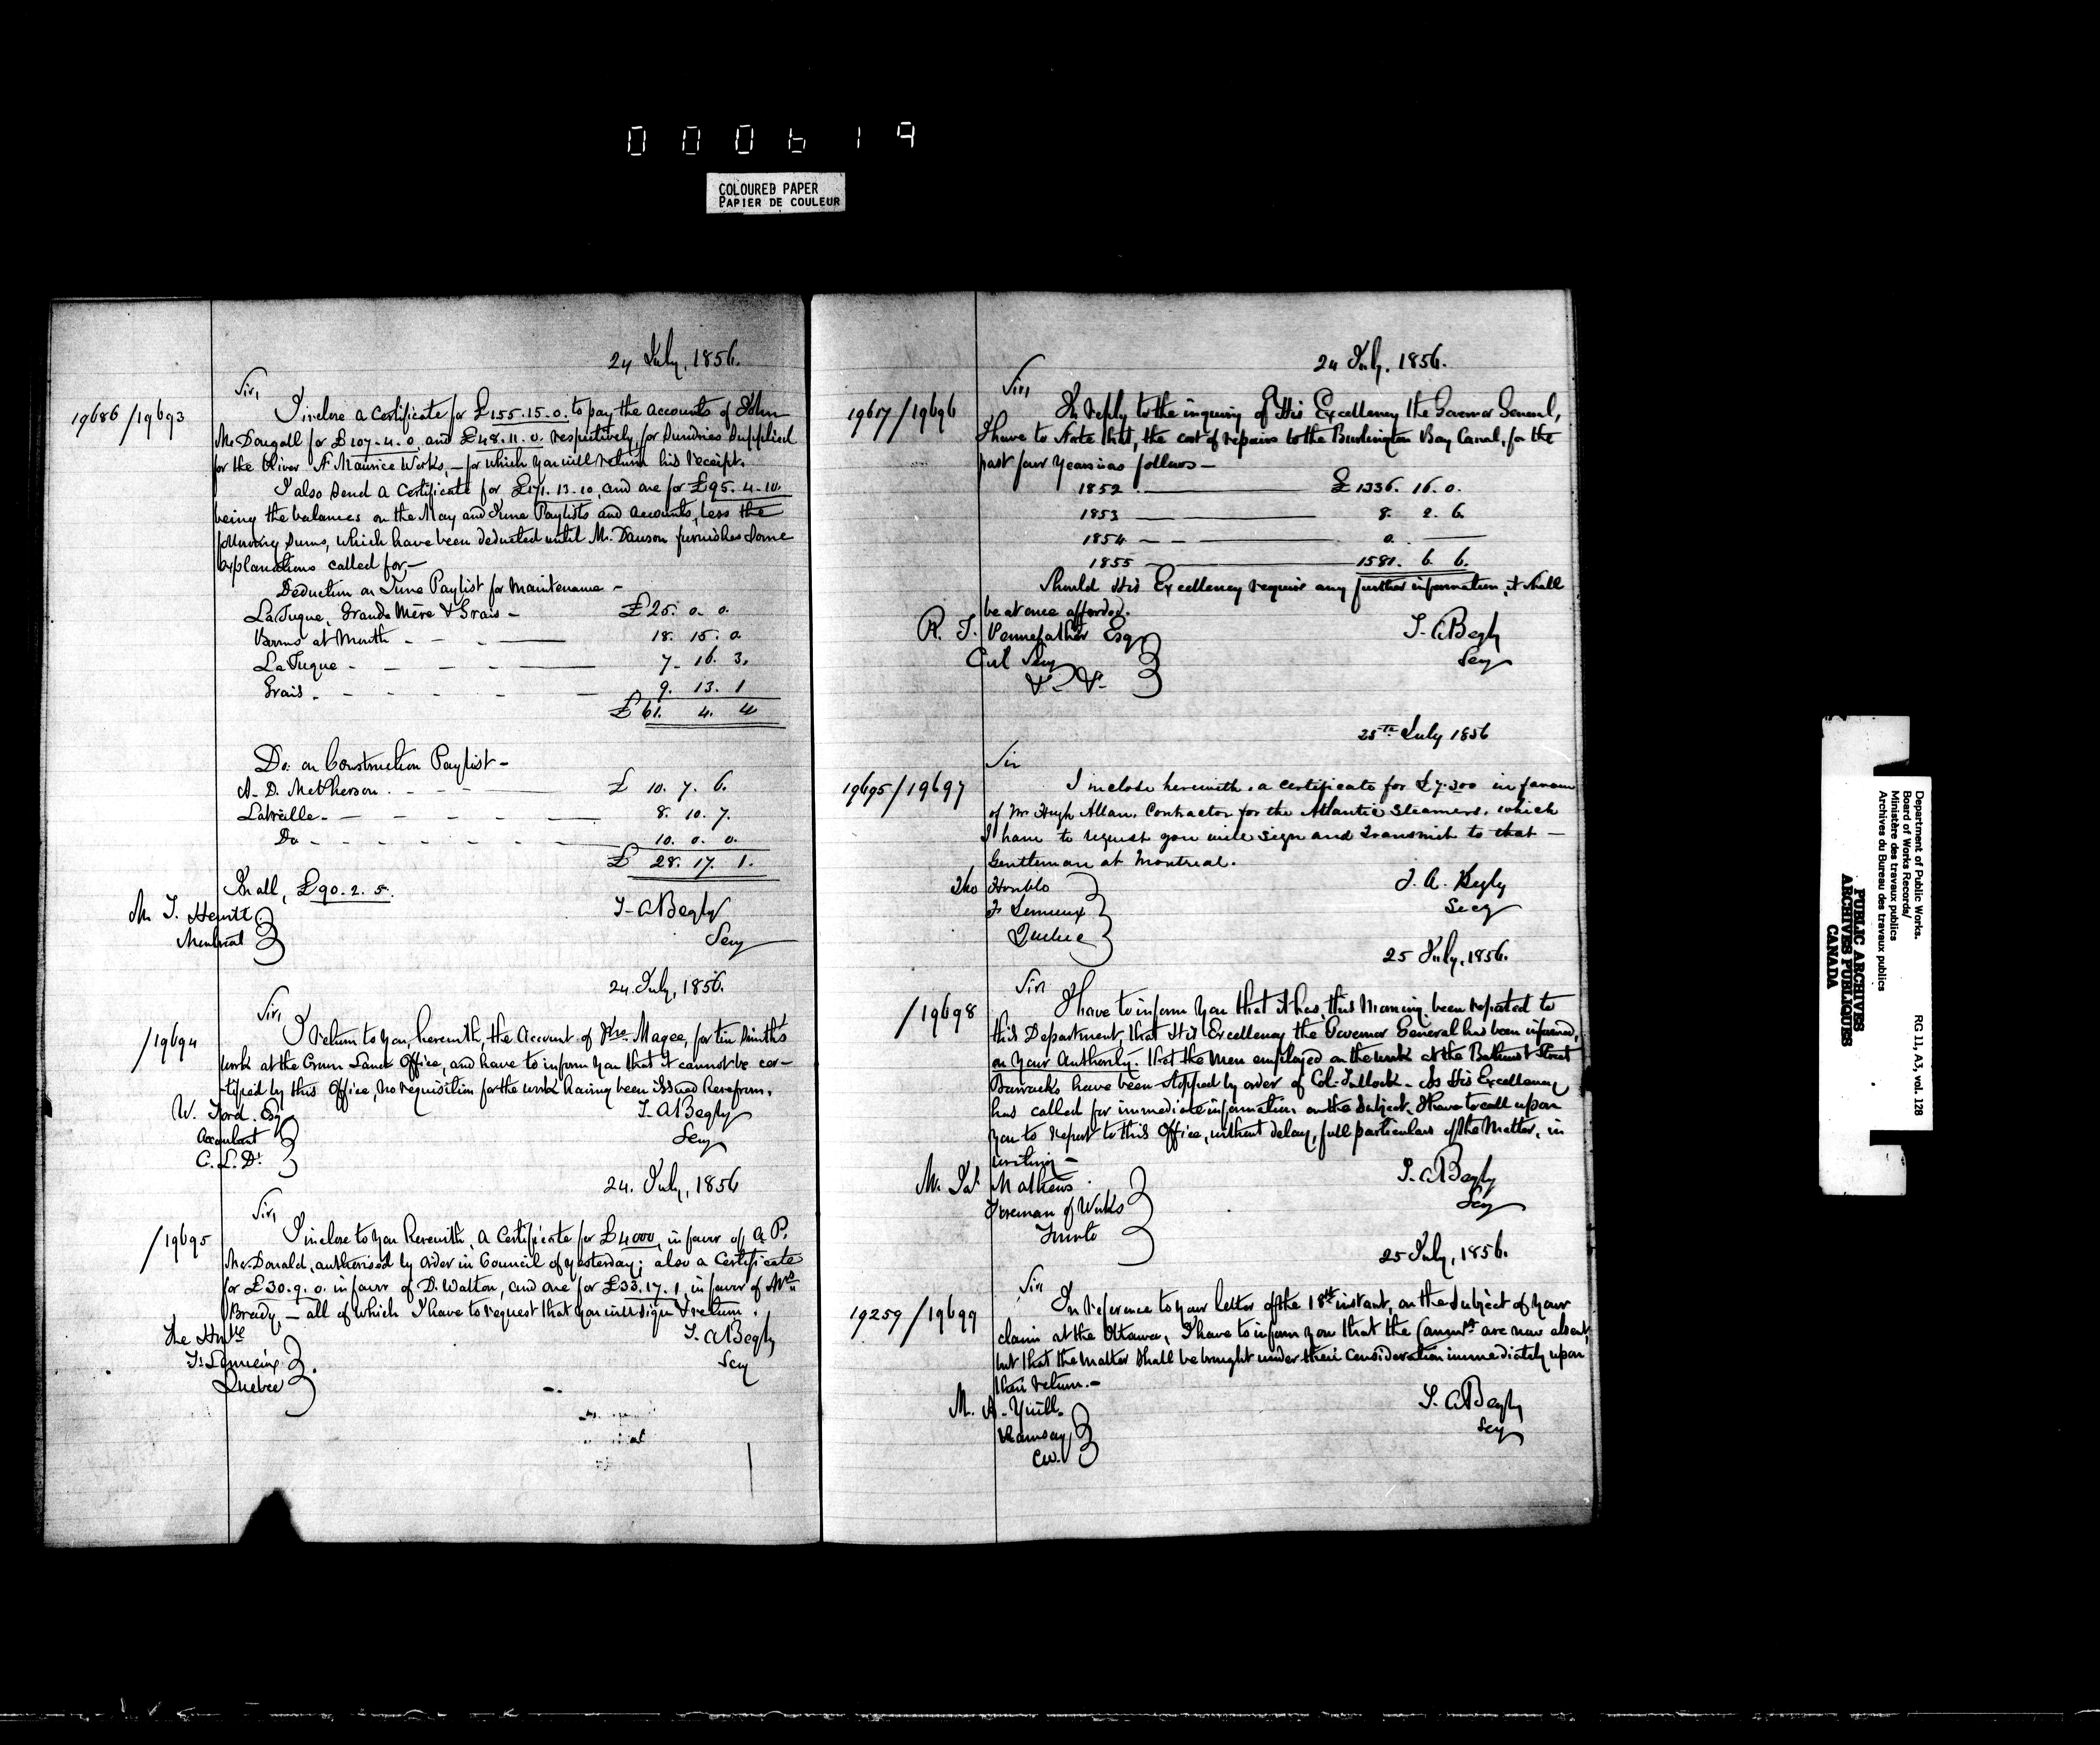 000619
COLOURED PAPER
PAPIER DE COULEUR
24 July, 1856.
Sir,
19686/19693
I inclose a Certificate for £155.15.0. to pay the accounts of John
McDougall for £107.4.0. and £48.11.0. respectively, for Sundries Supplied
for the River St Maurice Works, — for which you will return his receipt.
I also send a Certificate for £171.13.10, and one for £95.4.10.
being the balances on the May and June Paylists and Accounts, less the
following sums, which have been deducted until Mr. Dawson furnishes some
explanations called for, —
Deduction on June Paylist for Maintenance —
La Tuque, Grande Mère & Grais — £25. 0. 0.
Booms at Mouth - - - 18. 15. 0.
La Tuque - - - 7. 16. 3.
Grais - - - 9. 13. 1
£61. 4. 4
Do. on Construction Paylist —
A. D. McPherson - - - £ 10. 7. 6.
Latreille - - - 8. 10. 7.
Do - - - 10. 0. 0.
£ 28. 17. 1.
In all, £90. 2. 5.
Mr. J. Hewitt
Montreal
T. A Begly
Secy
24. July, 1856.
Sir,
/19694
I return to you, herewith, the Account of Magee, for tin smith's
work at the Crown Land Office, and have to inform you that it cannot be cer-
-tified by this Office, no requisition for the work having been issued herefrom.
W. Ford. Esq
Accountant
C. L. Dt.
T. A Begly
Secy
24. July, 1856
Sir,
/19695
I inclose to you herewith, a Certificate for £4000, in favor of A. P.
McDonald, authorised by order in Council of yesterday; also a Certificate
for £30.9.0. in favor of D. Walton, and one for £33.17.1. in favor of Mrs.
Bready — all of which I have to request that you will sign & return.
The Honble
F. Lemieux
Quebec
T. A Begly
Secy
24 July, 1856.
Sir,
19617/19696
In reply to the inquiry of His Excellency the Governor General,
I have to state that, the cost of repairs to the Burlington Bay Canal, for the
past four years is as follows —
1852 — £1336. 16. 0.
1853 — 8. 2. 6.
1854 — 0. —
1855 — 1581. 6. 6.
Should His Excellency require any further information, it shall
be at once afforded.
R. T. Pennefather Esq
Civil Secy
&c. &c.
T. A Begly
Secy
25th July 1856
Sir
19695/19697
I inclose herewith, a certificate for £7.300 in favour
of Mr Hugh Allan, Contractor for the Atlantic Steamers, which
I have to request you will sign and transmit to that —
Gentleman at Montreal.
The Honble
F. Lemieux
Quebec
T. A. Begly
Secy
25 July, 1856.
Sir
/19698
I have to inform you that it has, this morning, been reported to
this Department, that His Excellency the Governor General has been informed,
on your Authority, that the men employed on the work at the Bathurst Street
Barracks have been stopped by order of Col. Tullock — As His Excellency
has called for immediate information on the subject, I have to call upon
you to report to this Office, without delay, full particulars of the Matter, in
writing —
Mr. Jas. Mathews
Foreman of Works
Toronto
T. A Begly
Secy
25 July, 1856.
Sir
19259/19699
In reference to your letter of the 18th instant, on the subject of your
claim at the Ottawa, I have to inform you that the Commrs are now absent,
but that the matter shall be brought under their consideration immediately upon
their return. —
Mr. A. Yuill.
Ramsay,
C.W.
T. A Begly
Secy
Department of Public Works.
Board of Works Records/
Ministère des travaux publics
Archives du Bureau des travaux publics
RG 11, A3, vol. 128
PUBLIC ARCHIVES
ARCHIVES PUBLIQUES
CANADA